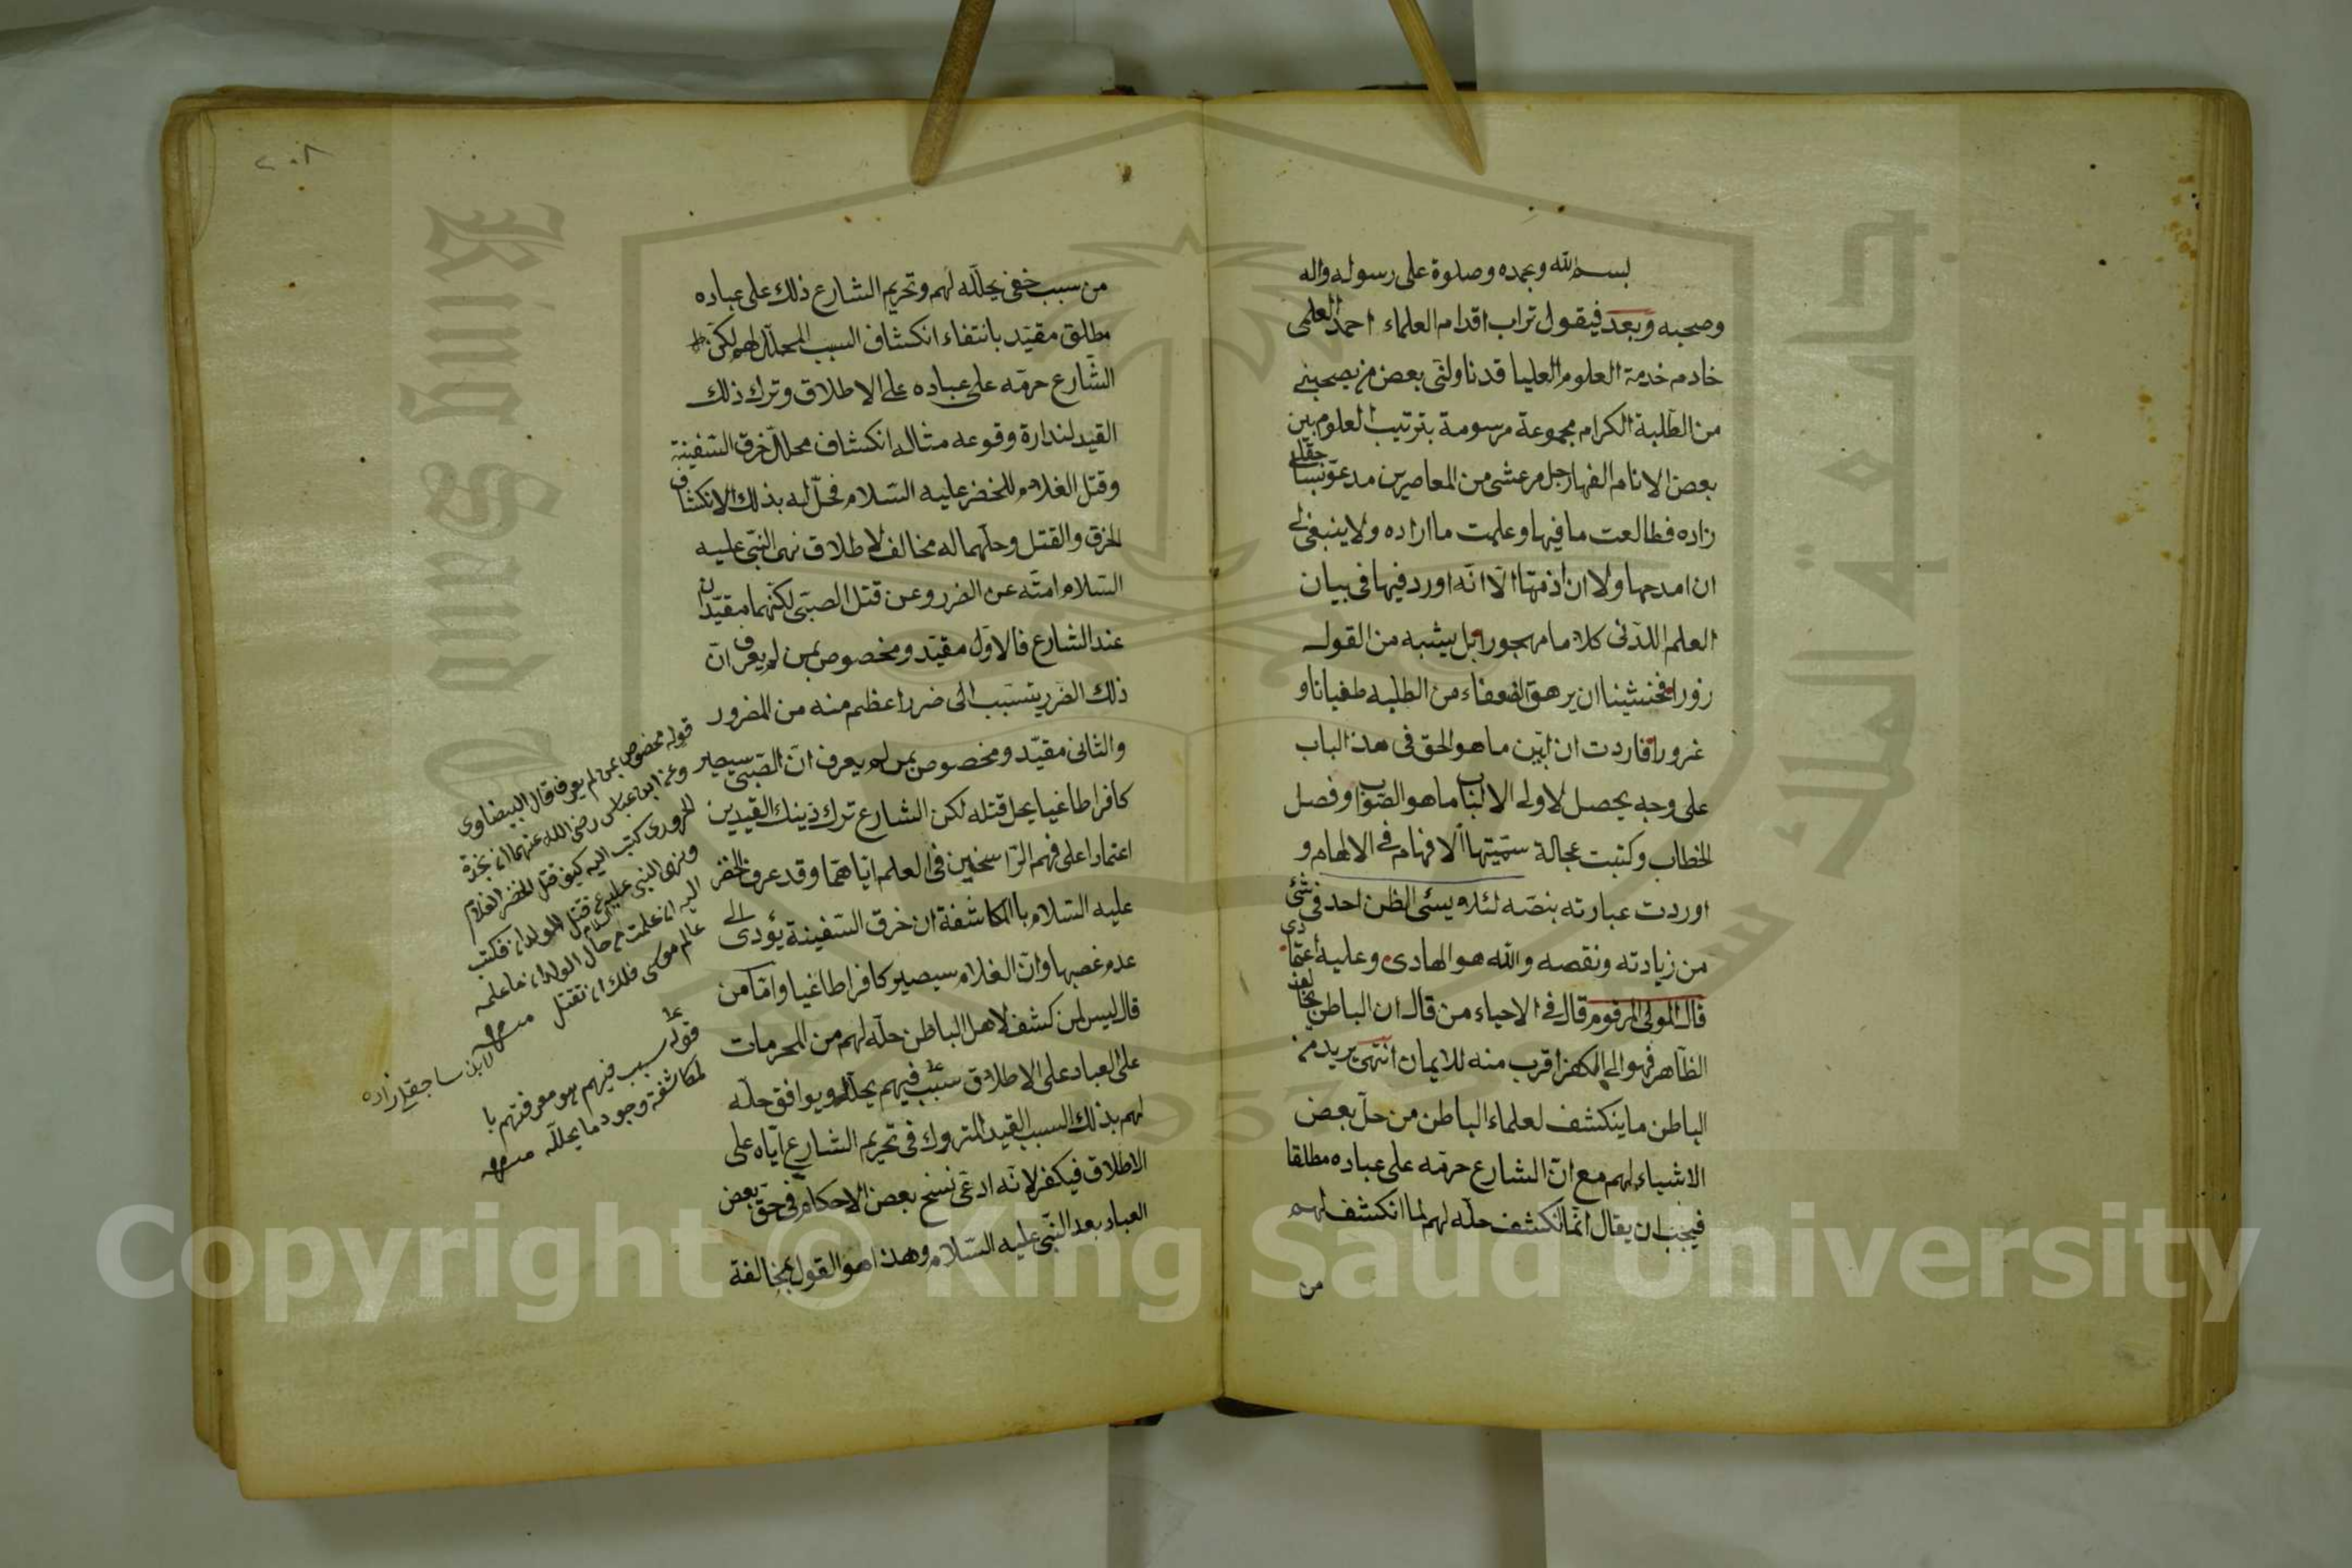 بسم الله وبحمده وصلوة على رسوله واله
وصحبه وبعد فيقول تراب اقدام العلماء احمد العلمى
خادم خدمة العلوم العليا قد ناولنى بعض من يصحبنى
من الطلبة الكرام مجموعة مرسومة بترتيب العلوم بين
بعض الانام الفها رجل مرعشى من المعاصرين مدعو بساجقلى
زاده فطالعت ما فيها وعلمت ما اراده ولا ينبغى لى
ان امدحها ولا ان اذمها الا انه اورد فيها فى بيان
العلم اللدنى كلاما مهجورا بل يشبه من القول
زورا فخشينا ان يرهق الضعفاء من الطلبه طغيانا و
غرورا فاردت ان ابين ما هو الحق فى هذا الباب
على وجه يحصل لاولى الالباب ما هو الصواب وفصل
الخطاب وكتبت عجالة سميتها الافهام فى الالهام و
اوردت عبارته بنصه لئلا يسئ الظن احد فى شئ
من زيادته ونقصه والله هو الهادى وعليه اعتمادى
قال المولى المرقوم قال فى الاحياء من قال ان الباطن يخالف
الظاهر فهو الى الكفر اقرب منه للايمان انتهى يريد من
الباطن ما ينكشف لعلماء الباطن من حل بعض
الاشياء لهم مع ان الشارع حرمه على عباده مطلقا
فيجب ان يقال انما انكشف حله لهم لما انكشف لهم
من
٢٠٨
من سبب خفى يحلله لهم وتحريم الشارع ذلك على عباده
مطلق مقيد بانتفاء انكشاف السبب المحلل لهم لكن
الشارع حرمه على عباده على الاطلاق وترك ذلك
القيد لندارة وقوعه مثاله انكشاف محلل خرق السفينة
وقتل الغلام للخضر عليه السلام فحل له بذلك الانكشاف
الخرق والقتل وحلهما له مخالف لاطلاق نهى النبى عليه
السلام امته عن الضرر وعن قتل الصبى لكنهما مقيدان
عند الشارع فالاول مقيد ومخصوص بمن لم يعرف ان
ذلك الضرر يتسبب الى ضرر اعظم منه من المضرور
والثانى مقيد ومخصوص بمن لم يعرف ان الصبى سيصير
كافرا طاغيا يحل قتله لكن الشارع ترك ذينك القيدين
اعتمادا على فهم الراسخين فى العلم اياهما وقد عرف الخضر
عليه السلام بالمكاشفة ان خرق السفينة يؤدى الى
عدم غصبها وان الغلام سيصير كافرا طاغيا واما من
قال ليس لمن كشف لاهل الباطن حله لهم من المحرمات
على العباد على الاطلاق سبب فيهم يحلله ويوافق حله
لهم بذلك السبب القيد المتروك فى تحريم الشارع اياه على
الاطلاق فيكفر لانه ادعى نسخ بعض الاحكام فى حق بعض
العباد بعد النبى عليه السلام وهذا هو القول بمخالفة
قوله مخصوص بمن لم يعرف قال البيضاوى
وعن ابن عباس رضى الله عنهما ان نجدة
الحرورى كتب اليه كيف قتل الخضر الغلام
ونهى النبى عليه السلام عن قتل الولدان فكتب
اليه ان علمت من حال الولدان ما علمه
عالم موسى فلك ان تقتل منه
لابن ساجقلى زاده
قوله سبب فيهم هو معرفتهم با
لمكاشفة وجود ما يحلله منه
Copyright © King Saud University
King Saud
جامعة الملك سعود
1957